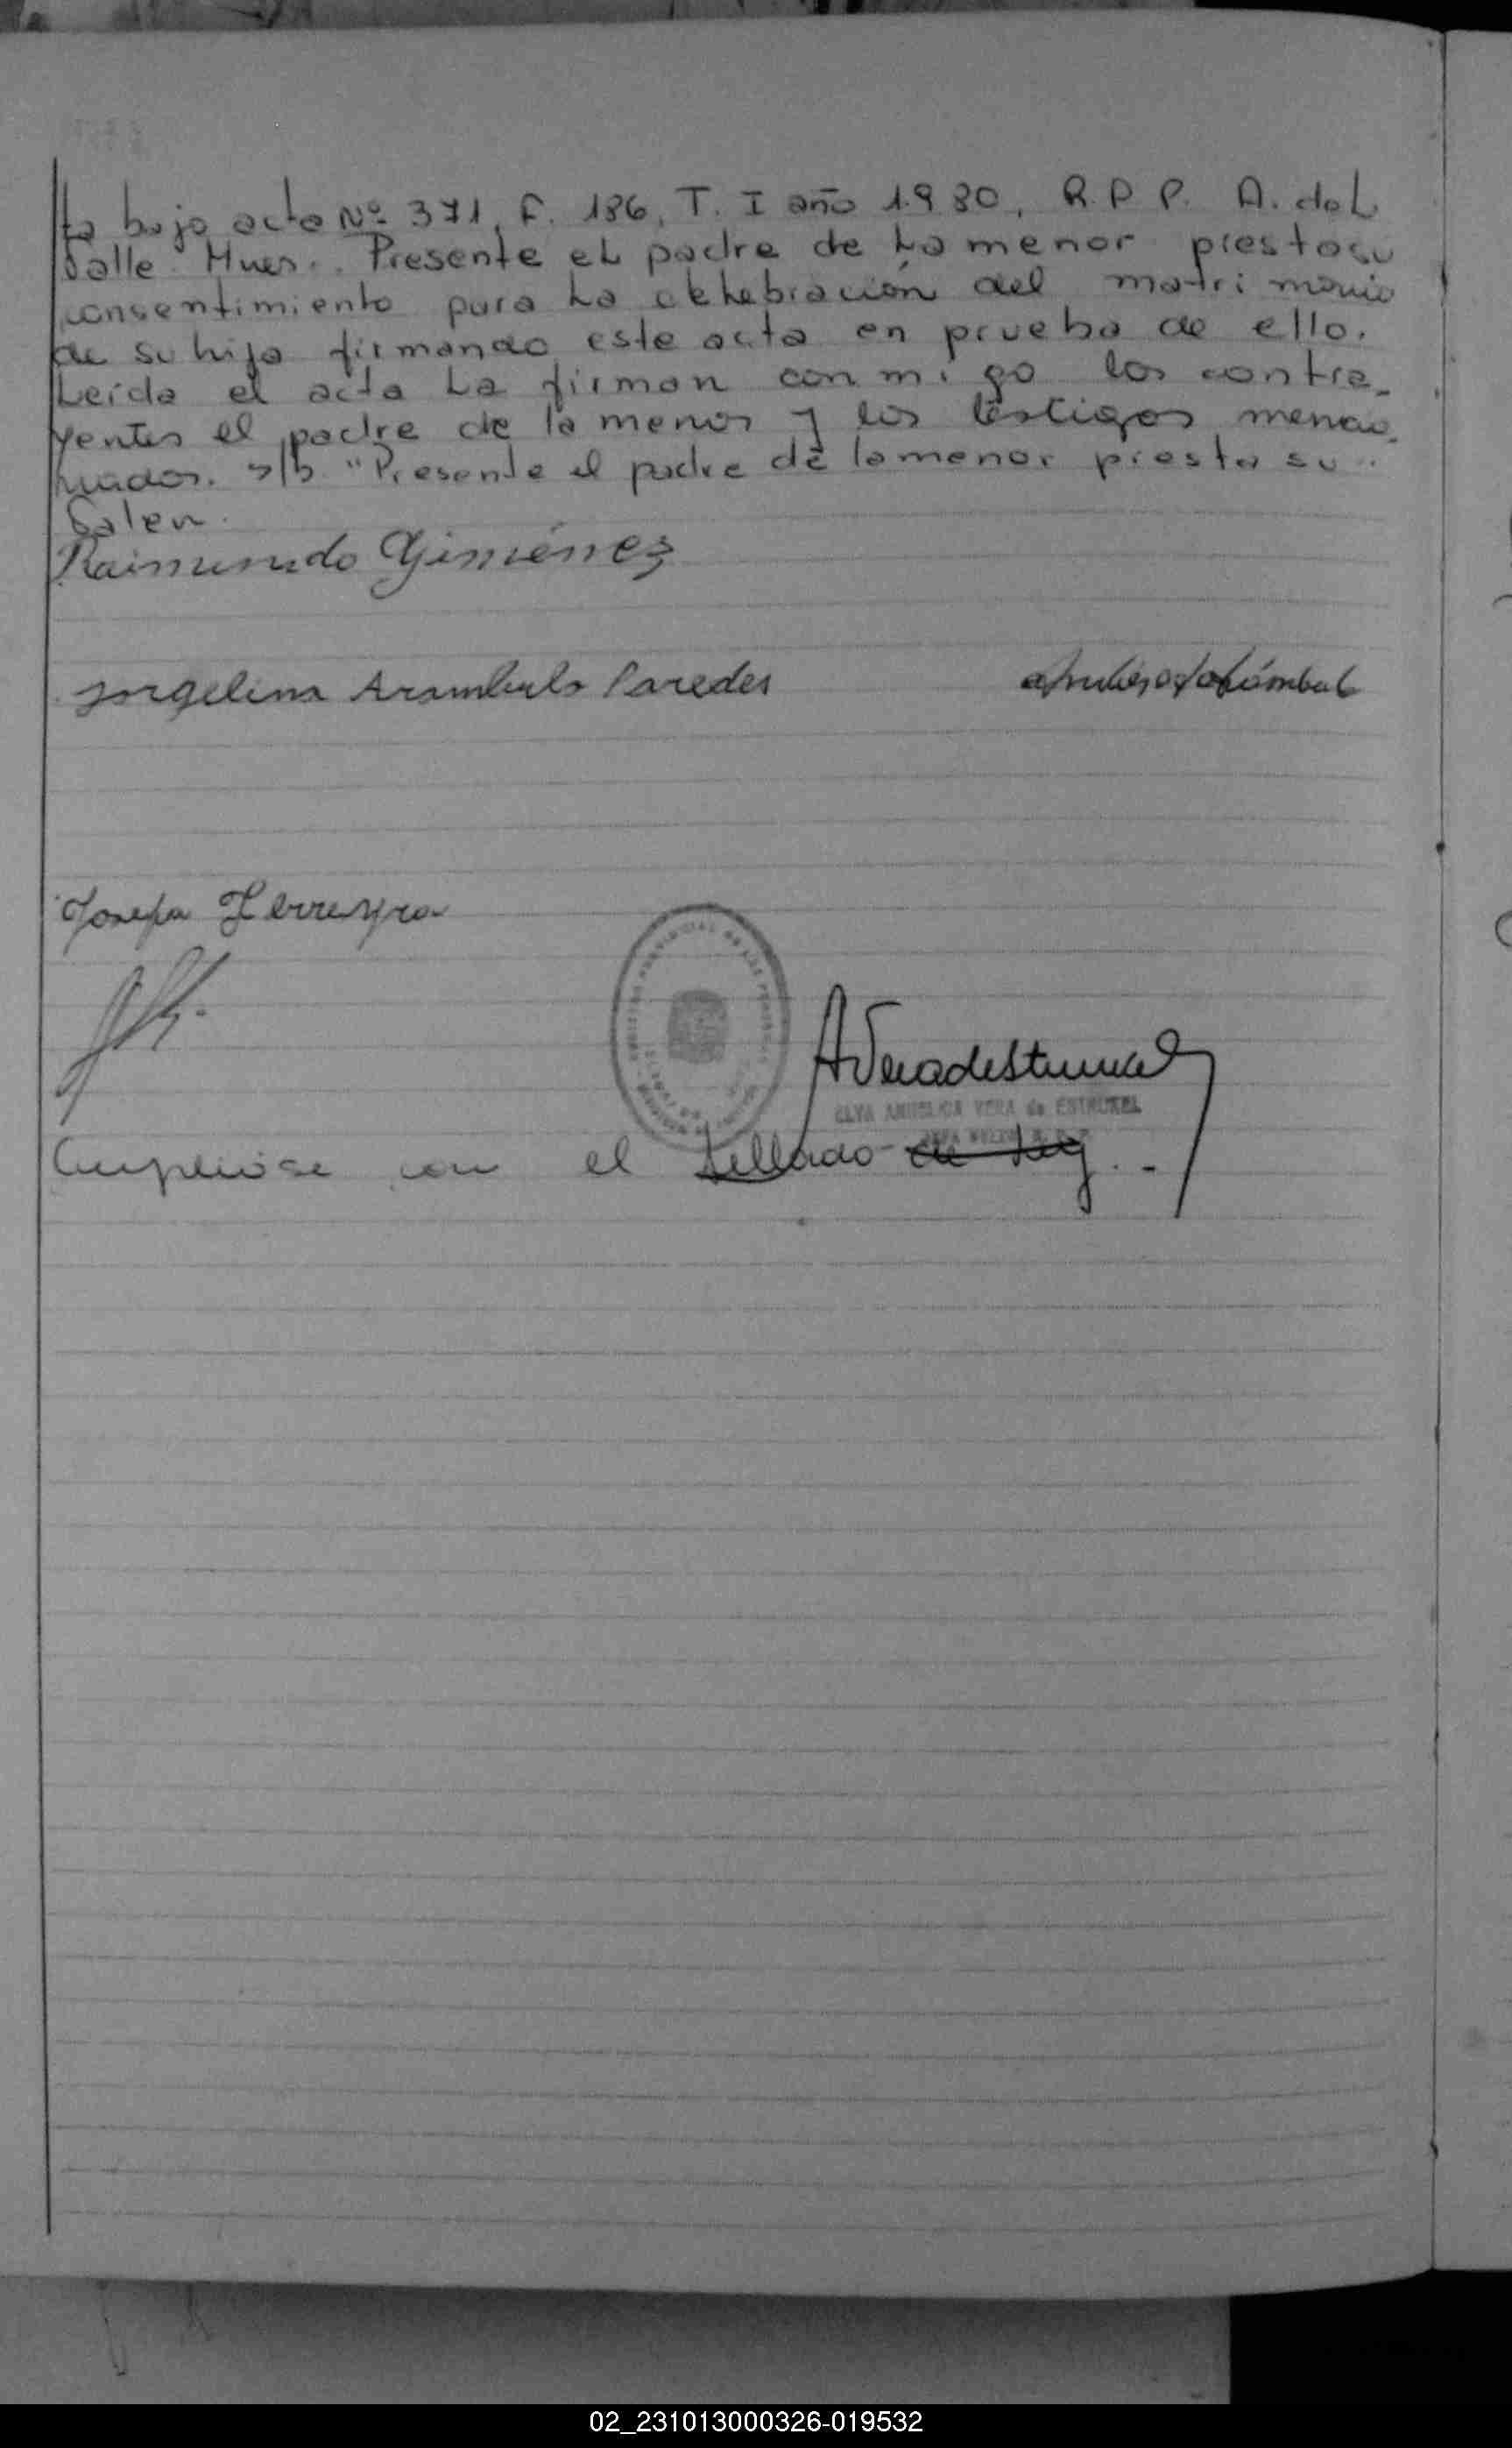 ta bajo acta Nº 371, F. 186, T. I año 1.980, R.P.P. A. del
Valle Hues. Presente el padre de la menor presta su
consentimiento para la celebración del matrimonio
de su hija firmando este acta en prueba de ello.
Leída el acta la firman conmigo los contra_
yentes el padre de la menor y los testigos mencio_
nados. s/b "Presente el padre de la menor presta su"
Valen.
Raimundo Giménez
Jorgelina Arambulo Paredes
Josefa Ferreyra
AVeradeStruukel
ELVA ANGELICA VERA de ESTRUKEL
Cumplióse con el sellado de ley.-
02_231013000326-019532